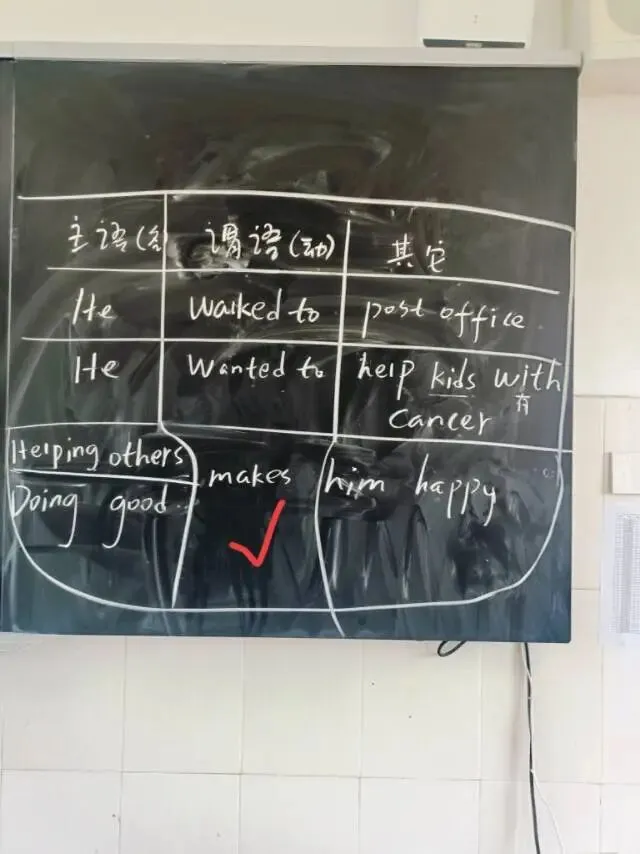 主语(名 谓语(动) 其它
He walked to post office
He Wanted to help kids with
有
cancer
Helping others makes him happy
Doing good